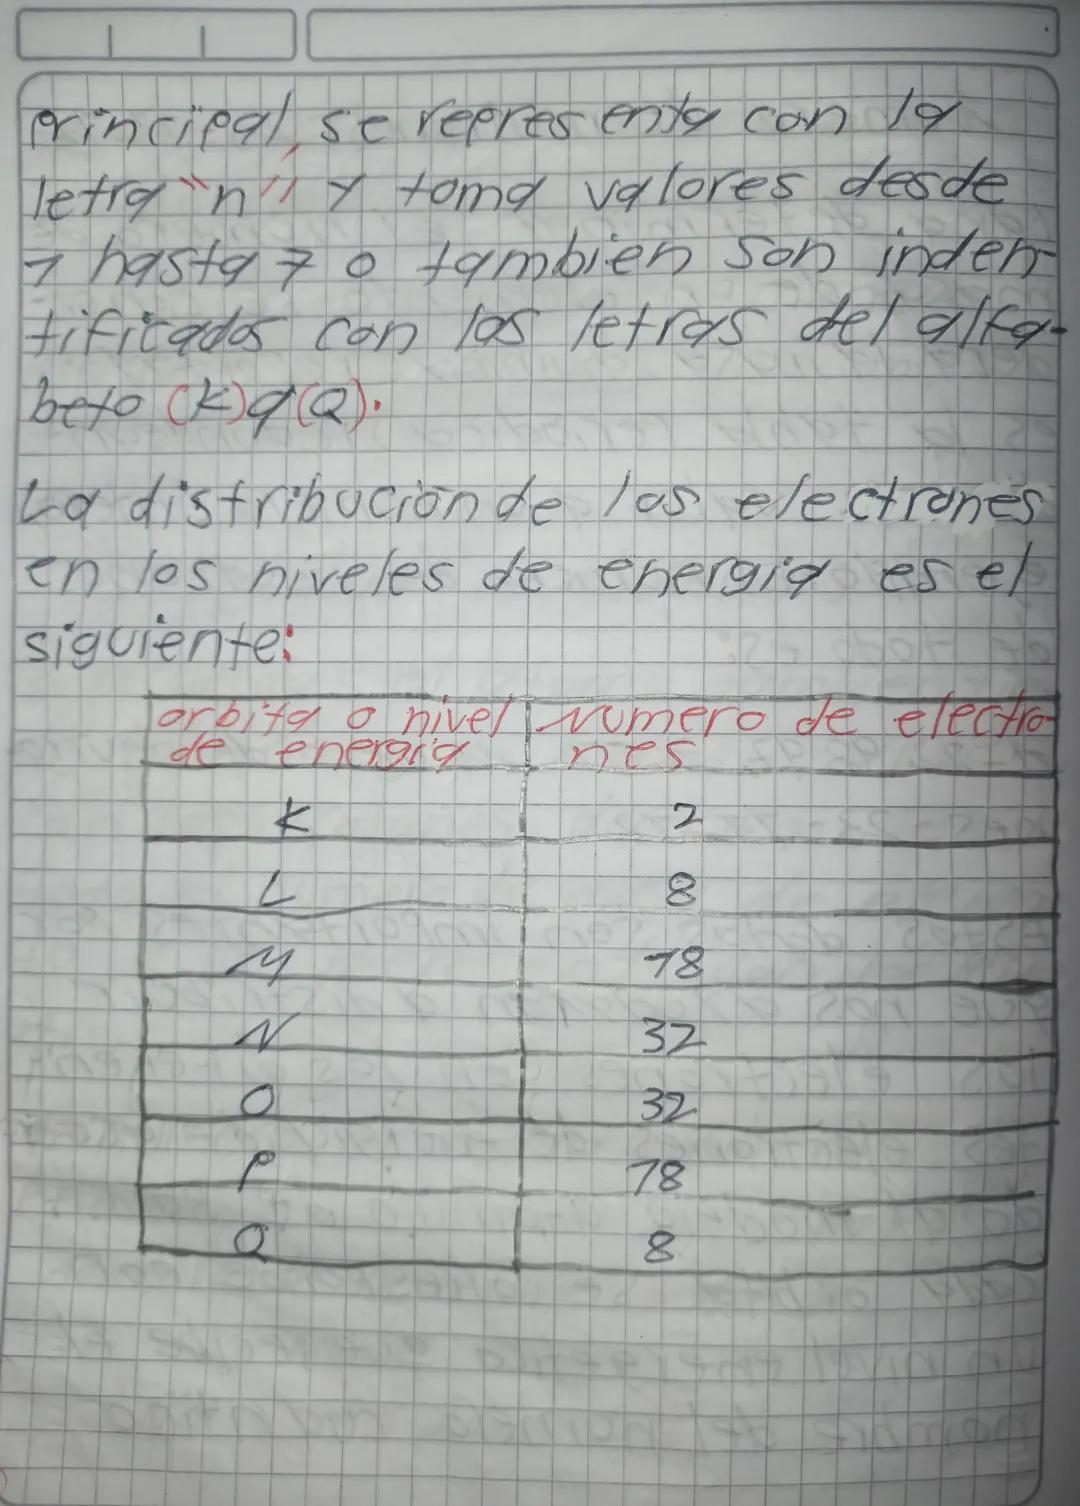 principal, se representa con la
letra "n" y toma valores desde
1 hasta 7 o tambien son inden-
tificados con las letras del alfa-
beto (K) a (Q).
La distribución de los electrones
en los niveles de energia es el
siguiente:
orbita o nivel de energia | Numero de electrones
K 2
L 8
M 18
N 32
O 32
P 18
Q 8